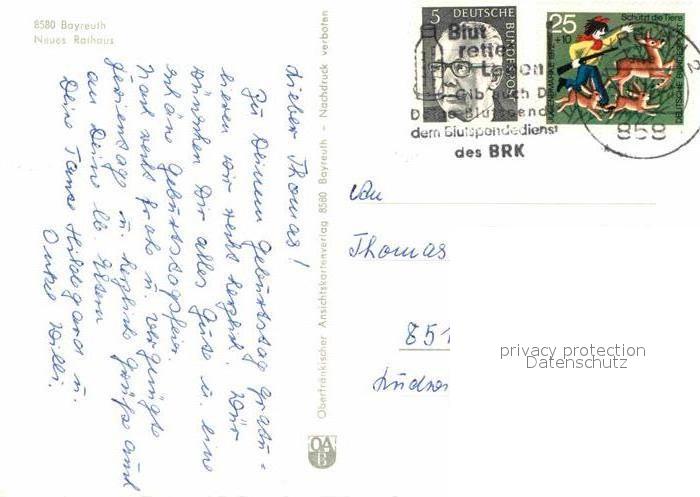 8580 Bayreuth
Neues Rathaus
Lieber Thomas!
Zu Deinem Geburtstag gratu-
lieren wir recht herzlich. Wir
wünschen Dir alles Gute u. eine
schöne Geburtstagsfeier.
Noch recht frohe u. vergnügte
Ferientage u. herzliche Grüße auch
an Deine lb. Eltern
Deine Tante Hildegard u.
Onkel Willi.
Oberfränkischer Ansichtskartenverlag 8580 Bayreuth - Nachdruck verboten
OA
B
5 DEUTSCHE BUNDESPOST
25
+10
Schützt die Tiere
Blut
rettet
Leben
dem Blutspendedienst
des BRK
858
Thomas
851
privacy protection
Datenschutz